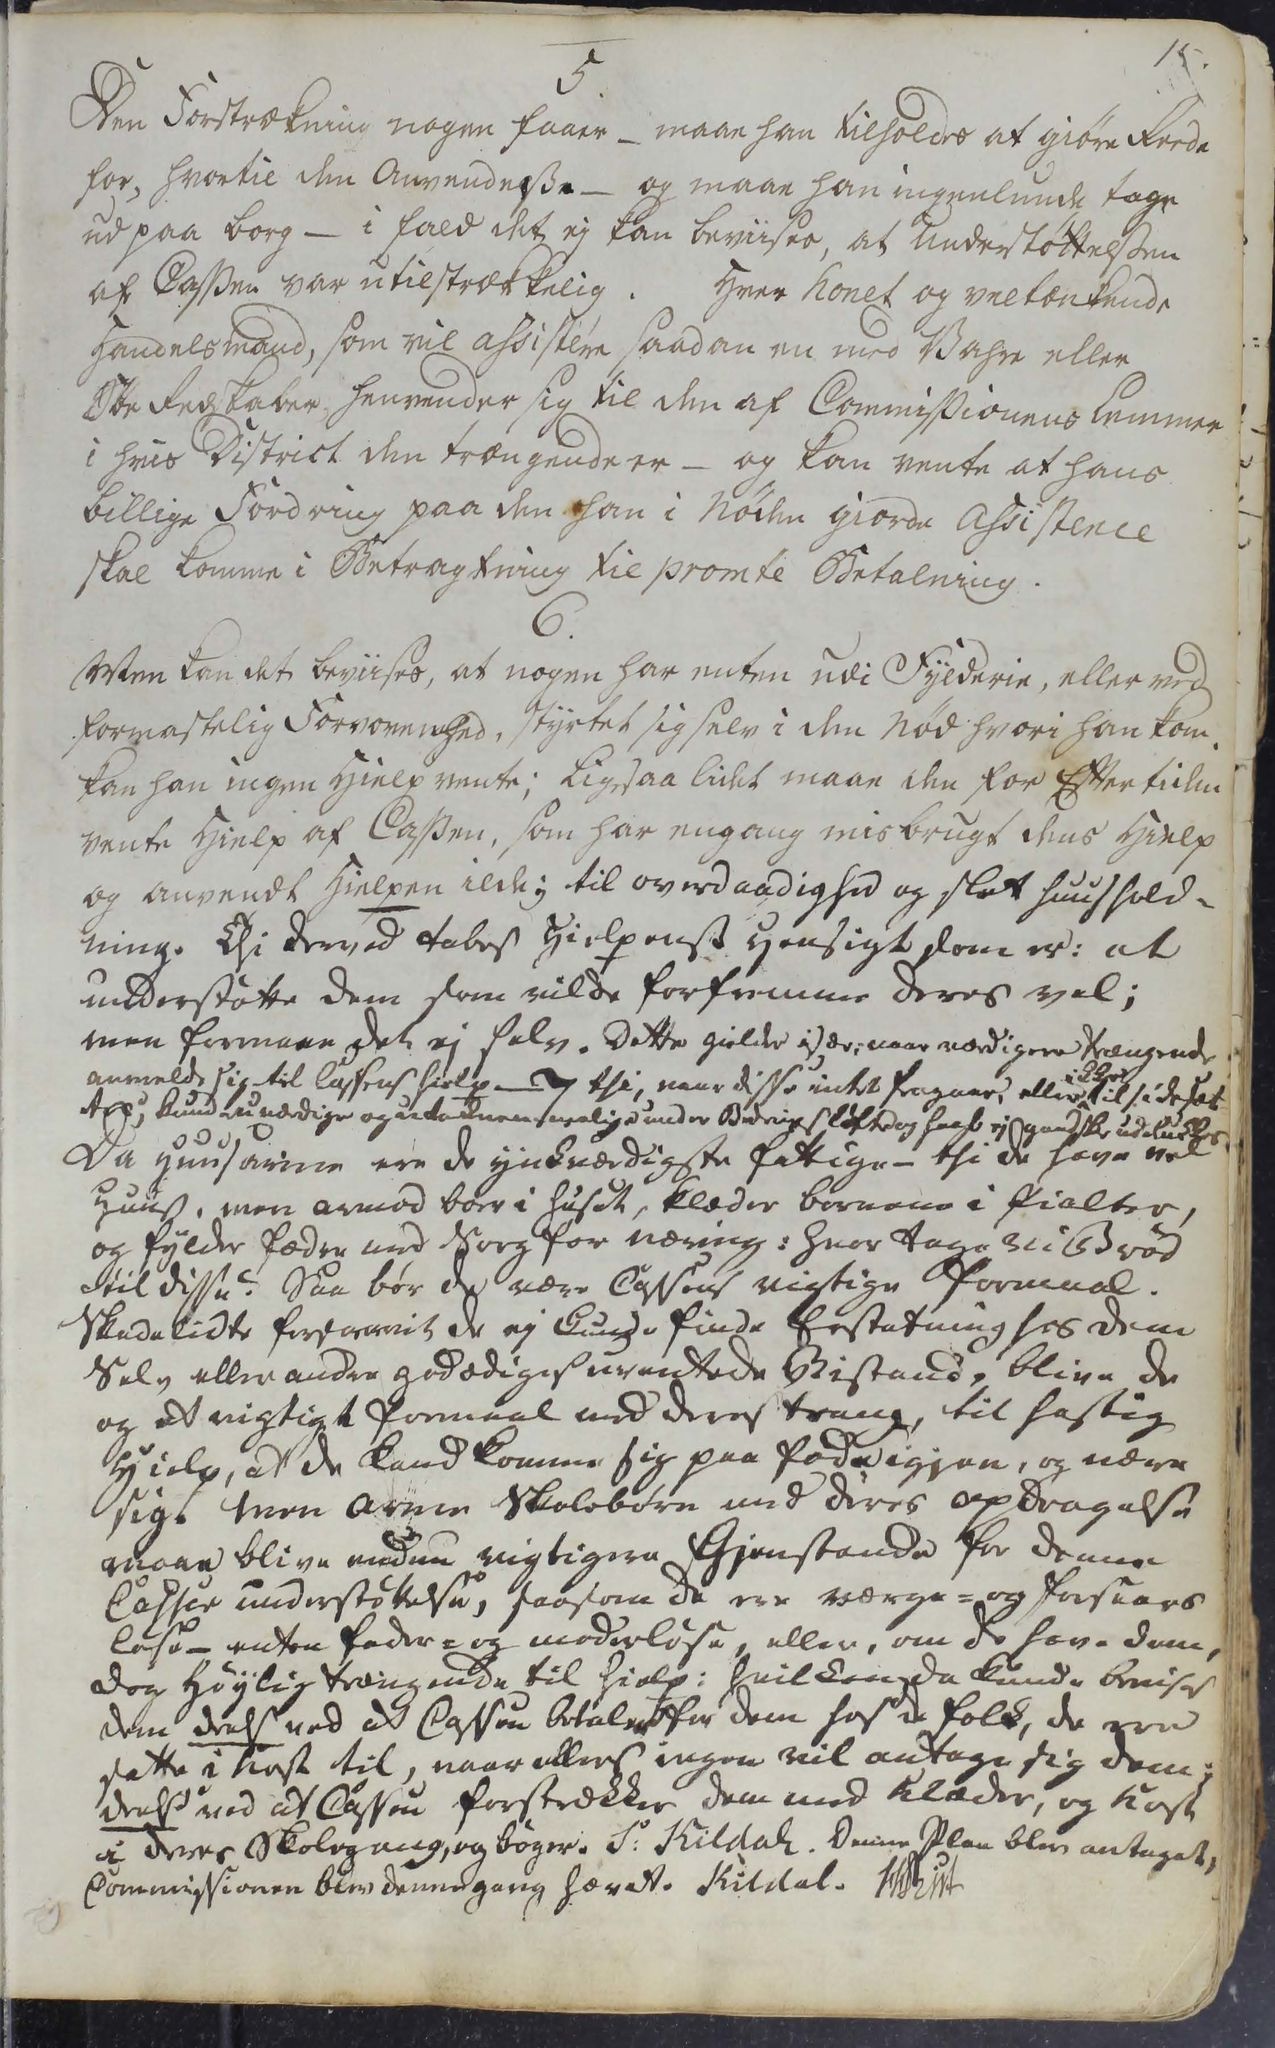 15.
5.
Den Forstrækning nogen faaer – maae han tilholdes at giöre Rede
for, hvortil den Anvendesse – og maae han ingenlunde tage
ud paa borg – i fald det ej kan beviises, at Understöttelsen
af Cassen var utilstrækkelig. Hver honet og veltænkende
Handelsmand, som vil assistere saadan en med Vahre eller
Redskaber, henvender sig til den af Commissionens Lemmer
i hvis District den trængende er – og kan vente at hans
billige Fordring paa den han i Nöden giorde Assistence
skal komme i Betragtning til promte Betalning.
6.
Men kan det beviises, at nogen har enten udi Fylderie, eller ved
formastelig Forvovenhed, styrtet sig selv i den Nöd hvori han kom,
kan han ingen Hielp vente; ligesaa lidet maae den for Eftertiden
vente Hielp af Cassen, som har engang misbrugt dens Hielp
og anvendt Hielpen ilde; til overdaadighed og slet huushold-
ning. Thi derved tabes Hielpens Hensigt som er: at
understötte dem som vilde forfremme deres vel;
men formaae det ej selv. Dette gielder især, naar værdigere trængende
anmelde sig til Cassens hielp – thi, naar disse intet fragaaer, eller ikke tilsidesæt-
tes, kund uværdige og utaknemmelige under haab ej gandske udelukkes.
Da Huusarme ere de ynkværdigste fattige – thi de have vel
Huus, men armod boer i huset, klæder börnene i pialter,
og fylder fædre med Sorg for næring: hvor tage vi Bröd
til disse? Saa bör de være Cassens vigtige formaal.
Skadelidte forsaavit de ej kunde finde Erstatning hos dem
Selv eller andre godædiges uventede Bistand, blive de
og et vigtigt formaal med deres trang, til hastig
Hielp, at de kand komme sig paa fode igjen, og nære
sig. Men arme Skolebörn med deres opdragelse
maae blive endnu vigtigere Gjenstande for denne
Casses understöttelse, saasom de ere værge= og forsvars
löse – enten fader= og moderlöse, eller, om de have dem,
dog Höylig trængende til hielp: hvilken da kunde bevises
dem deels ved at Cassen betaler for dem hos de folk, de ere
satte i Kost til, naar ellers ingen vil antage sig dem;
deels ved at Cassen forstrækker dem med Klæder, og Kost
i deres Skolegang, og böger. S: Kildal. Denne Plan blev antaget,
Commissionen blev dennegang hævet. Kildal.